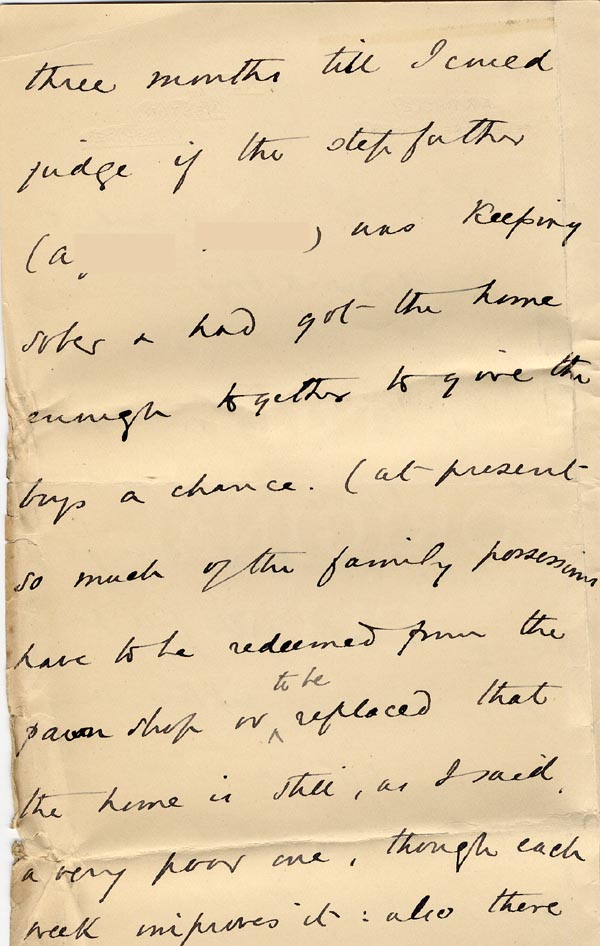 three months till I could
judge if the stepfather
(a ) was keeping
sober & had got the home
enough together to give the
boys a chance. (at present
so much of the family possessions
have to be redeemed from the
pawn shop or ^ to be replaced that
the home is still, as I said,
a very poor one, though each
week improves it: also there